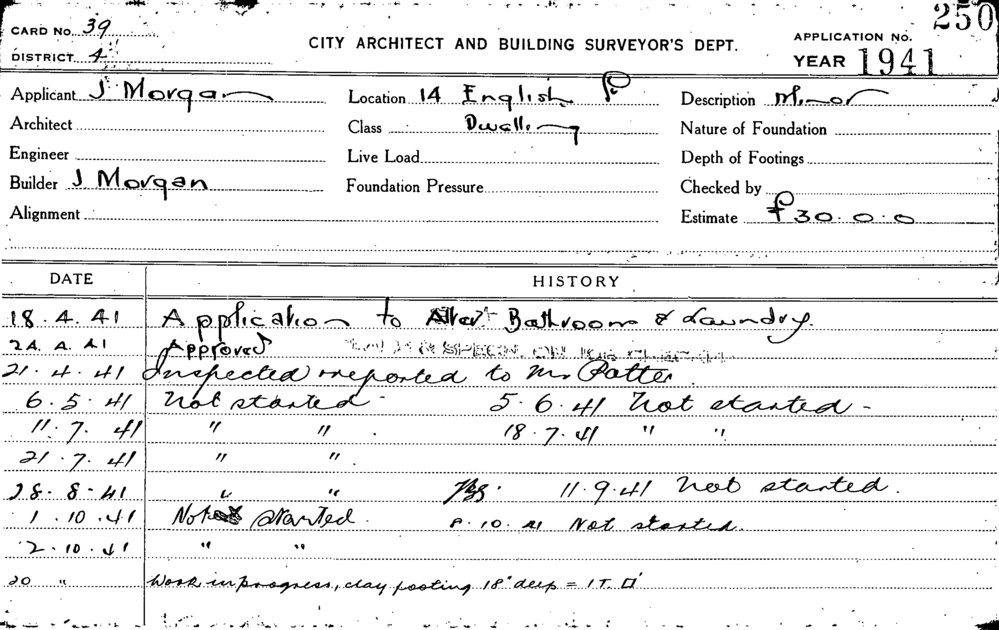 CARD No. 39
DISTRICT 4
CITY ARCHITECT AND BUILDING SURVEYOR'S DEPT.
APPLICATION No. 250
YEAR 1941
Applicant J Morgan
Location 14 English
Description Minor
Architect
Class Dwelling
Nature of Foundation
Engineer
Live Load
Depth of Footings
Builder J Morgan
Foundation Pressure
Checked by
Alignment
Estimate £30.0.0
DATE HISTORY
18.4.41 Application to Alter Bathroom & Laundry.
24.4.41 Approved
21.4.41 Inspected & reported to Mr Potter
6.5.41 Not started - 5.6.41 Not started -
11.7.41 " " . 18.7.41 " "
21.7.41 " " .
28.8.41 " " 11.9.41 Not started.
1.10.41 Not started. 8.10.41 Not started.
2.10.41 " "
20 " Work in progress, clay footing 18" deep = 1 T. □'